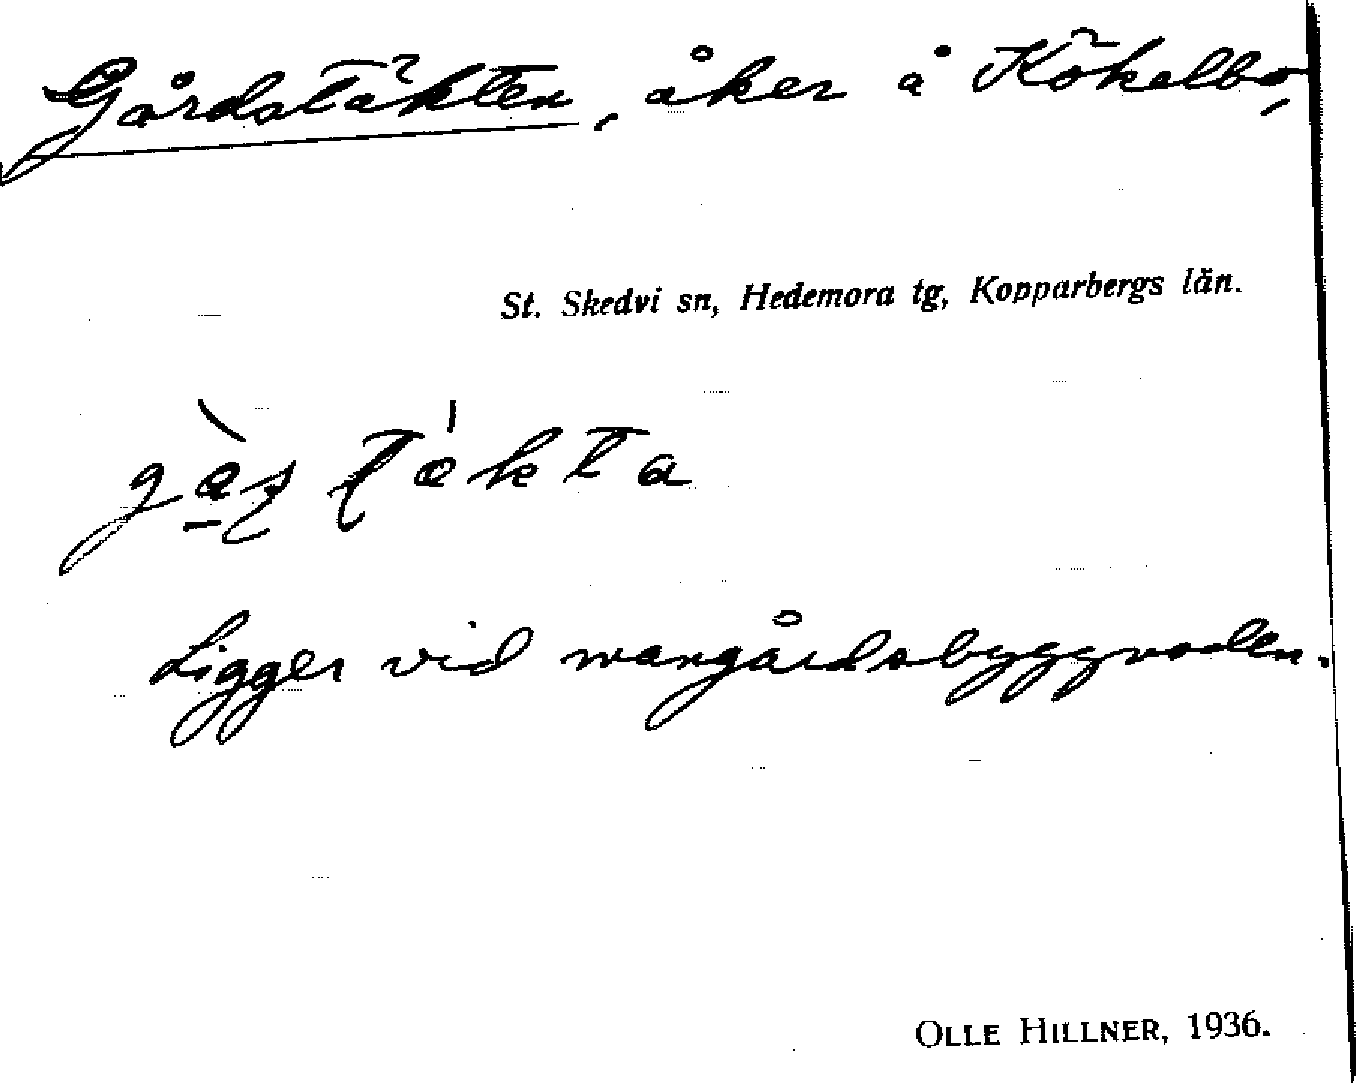 Gårdstäkten, åker å Kökelbo,
St. Skedvi sn, Hedemora tg, Kopparbergs län.
Ligger vid mangårdsbyggnaden.
OLLE HILLNER, 1936.